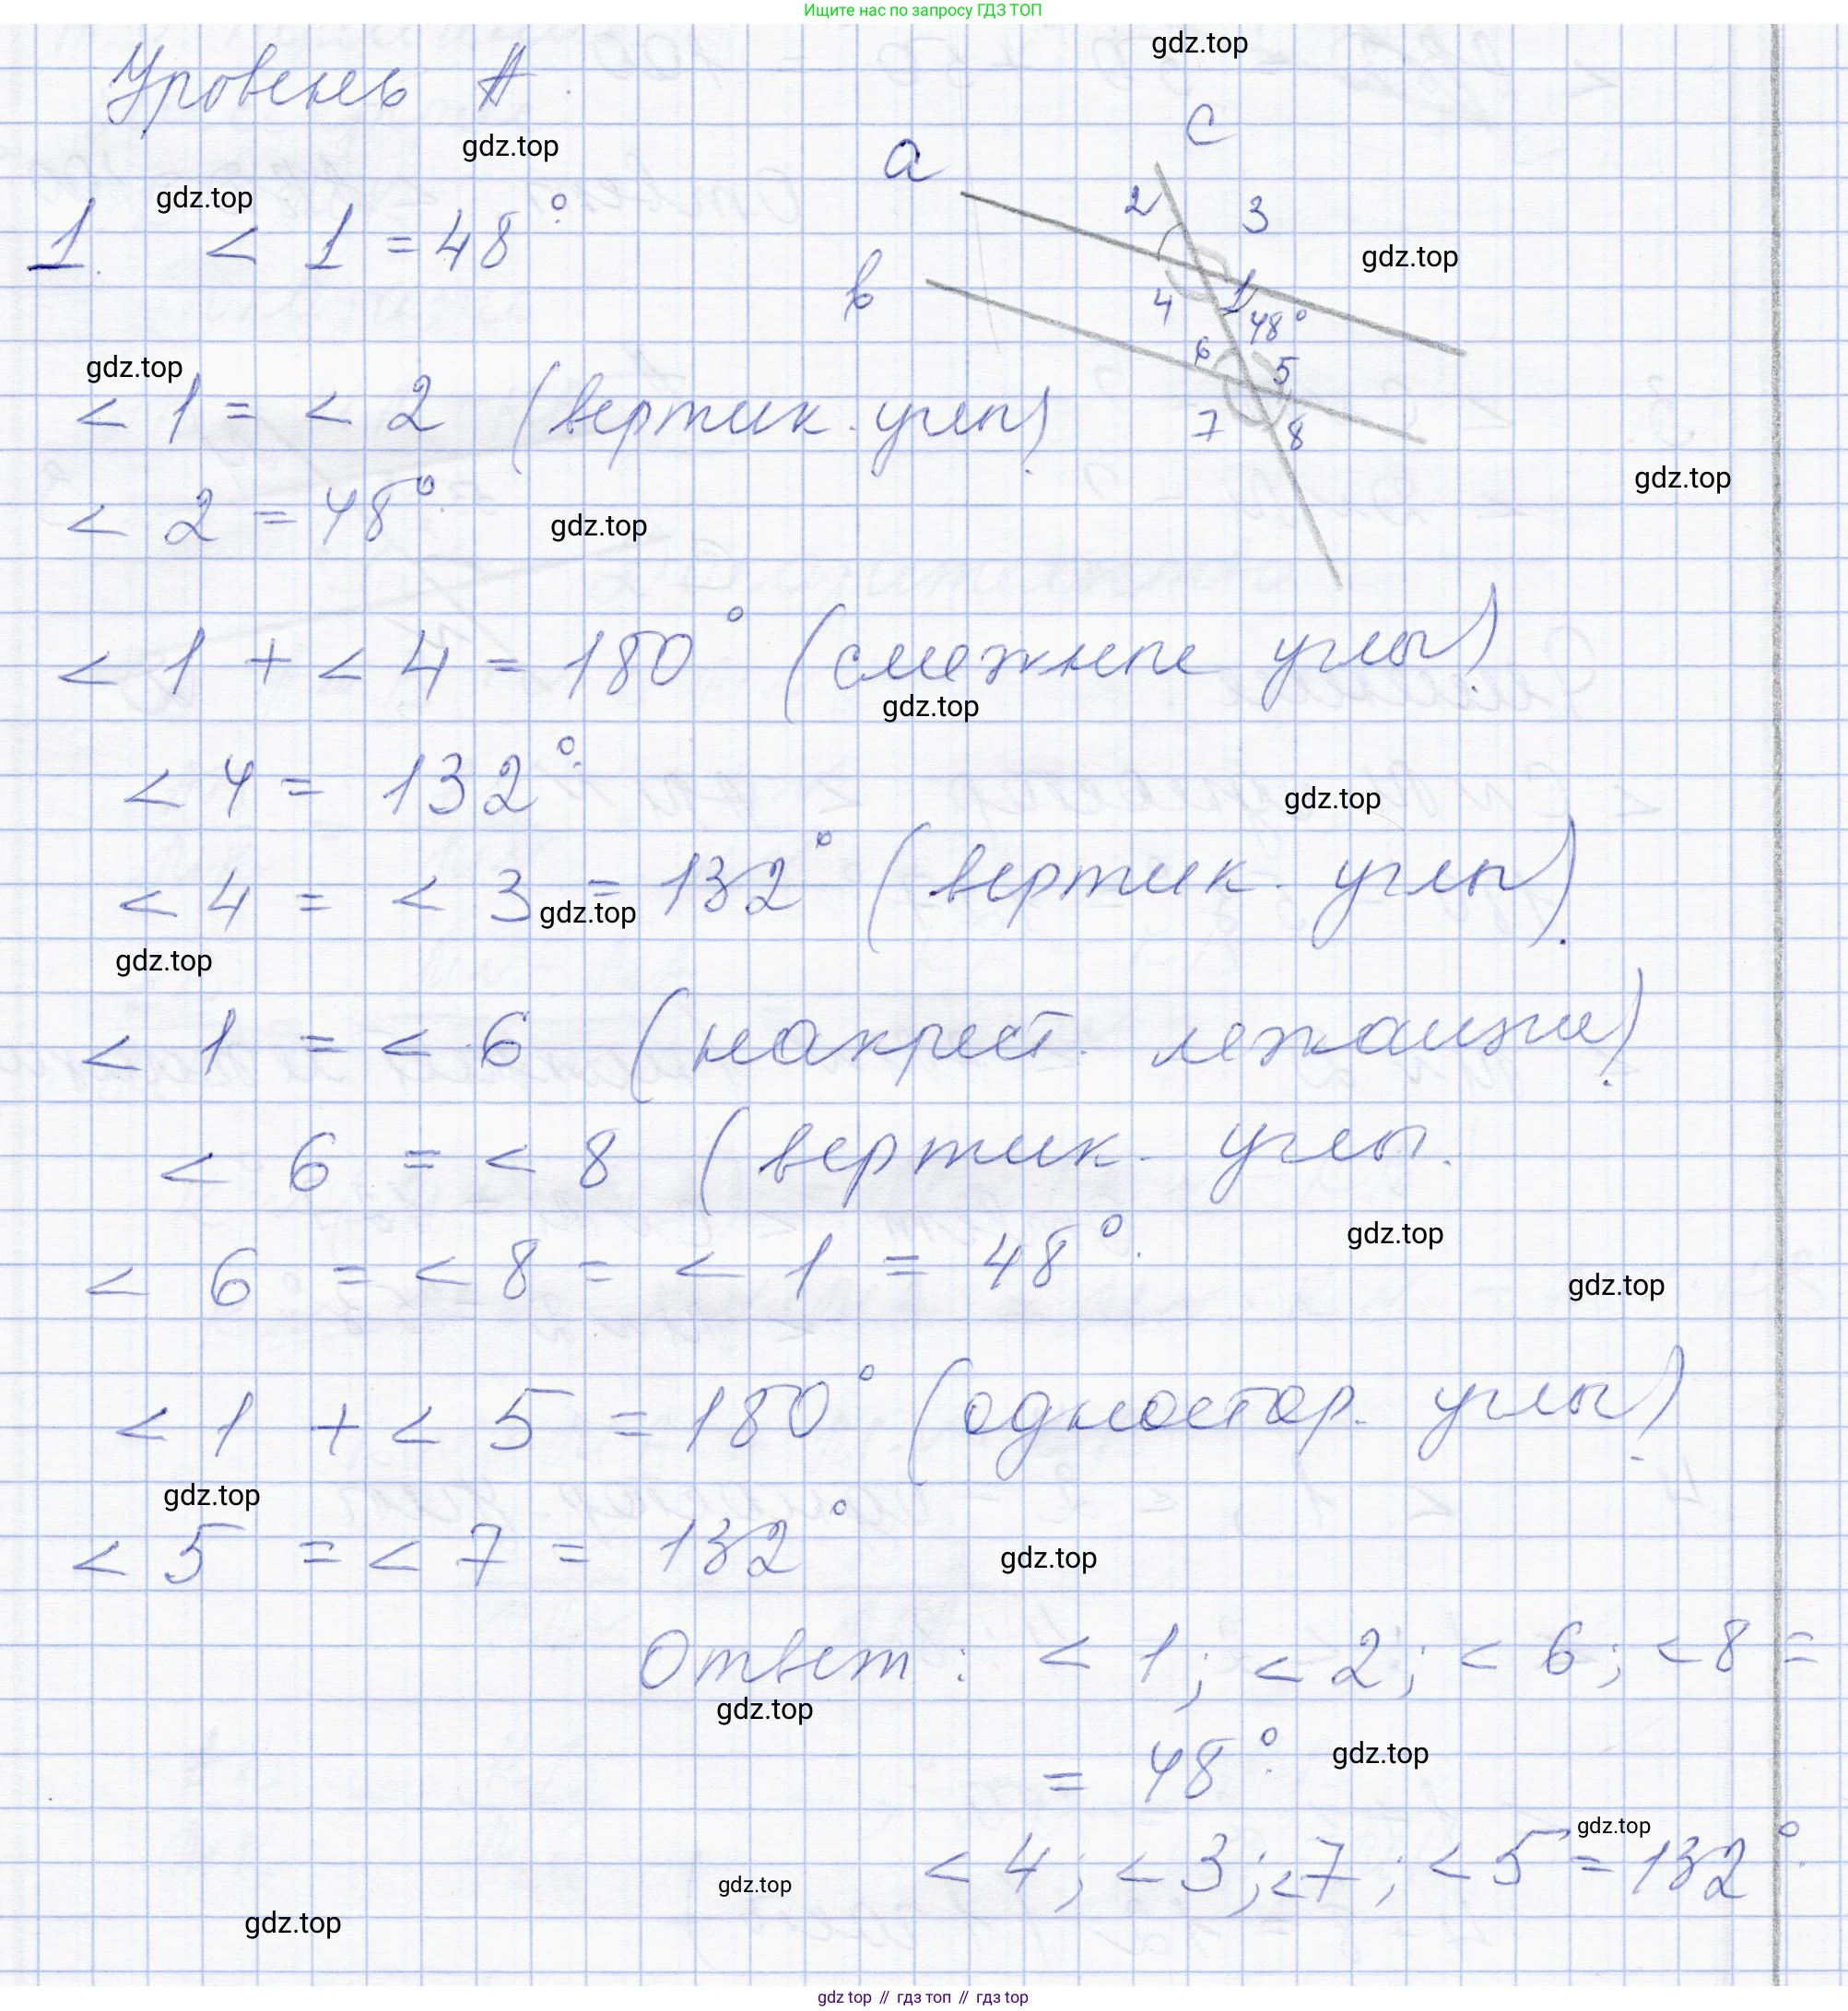 Ищите нас по запросу ГДЗ ТОП
gdz.top
Уровень А.
gdz.top
c
a
gdz.top
2
3
1. < 1 = 48°.
gdz.top
b
4
1
48°
6
5
gdz.top
< 1 = < 2 (вертик. углы).
7
8
gdz.top
< 2 = 48°.
gdz.top
< 1 + < 4 = 180° (смежные углы).
gdz.top
< 4 = 132°.
gdz.top
< 4 = < 3 = 132° (вертик. углы).
gdz.top
gdz.top
< 1 = < 6 (накрест. лежащие).
< 6 = < 8 (вертик. углы.
gdz.top
< 6 = < 8 = < 1 = 48°.
gdz.top
< 1 + < 5 = 180° (одностор. углы).
gdz.top
< 5 = < 7 = 132°
gdz.top
Ответ: < 1; < 2; < 6; < 8 =
gdz.top
= 48°.
gdz.top
gdz.top
< 4; < 3; < 7; < 5 = 132°.
gdz.top
gdz.top
gdz top // гдз топ // гдз top